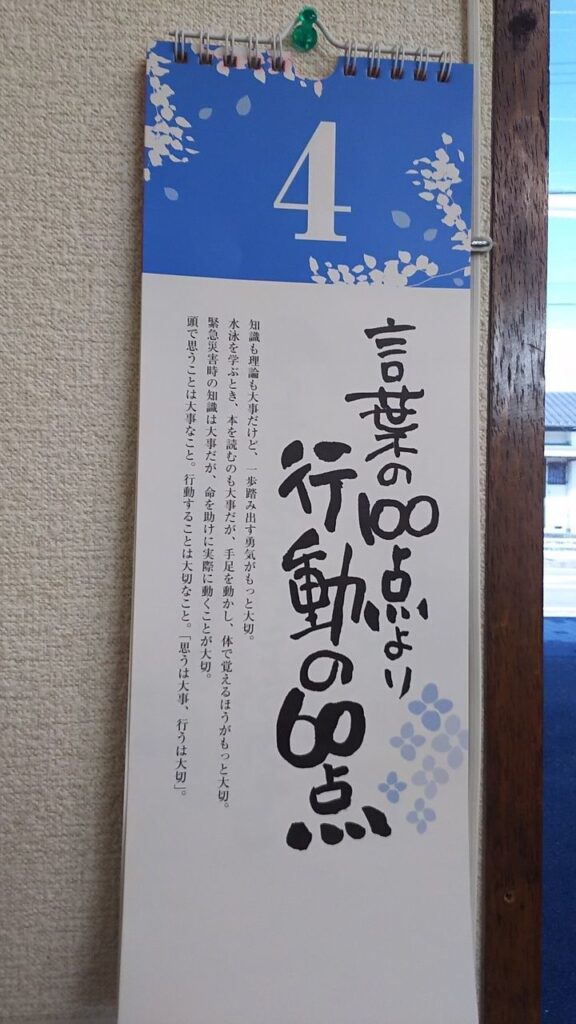 4
言葉の100点より
行動の60点
知識も理論も大事だけど、一歩踏み出す勇気がもっと大切。
水泳を学ぶとき、本を読むのも大事だが、手足を動かし、体で覚えるほうがもっと大切。
緊急災害時の知識は大事だが、命を助けに実際に動くことが大切。
頭で思うことは大事なこと。行動することは大切なこと。「思うは大事、行うは大切」。